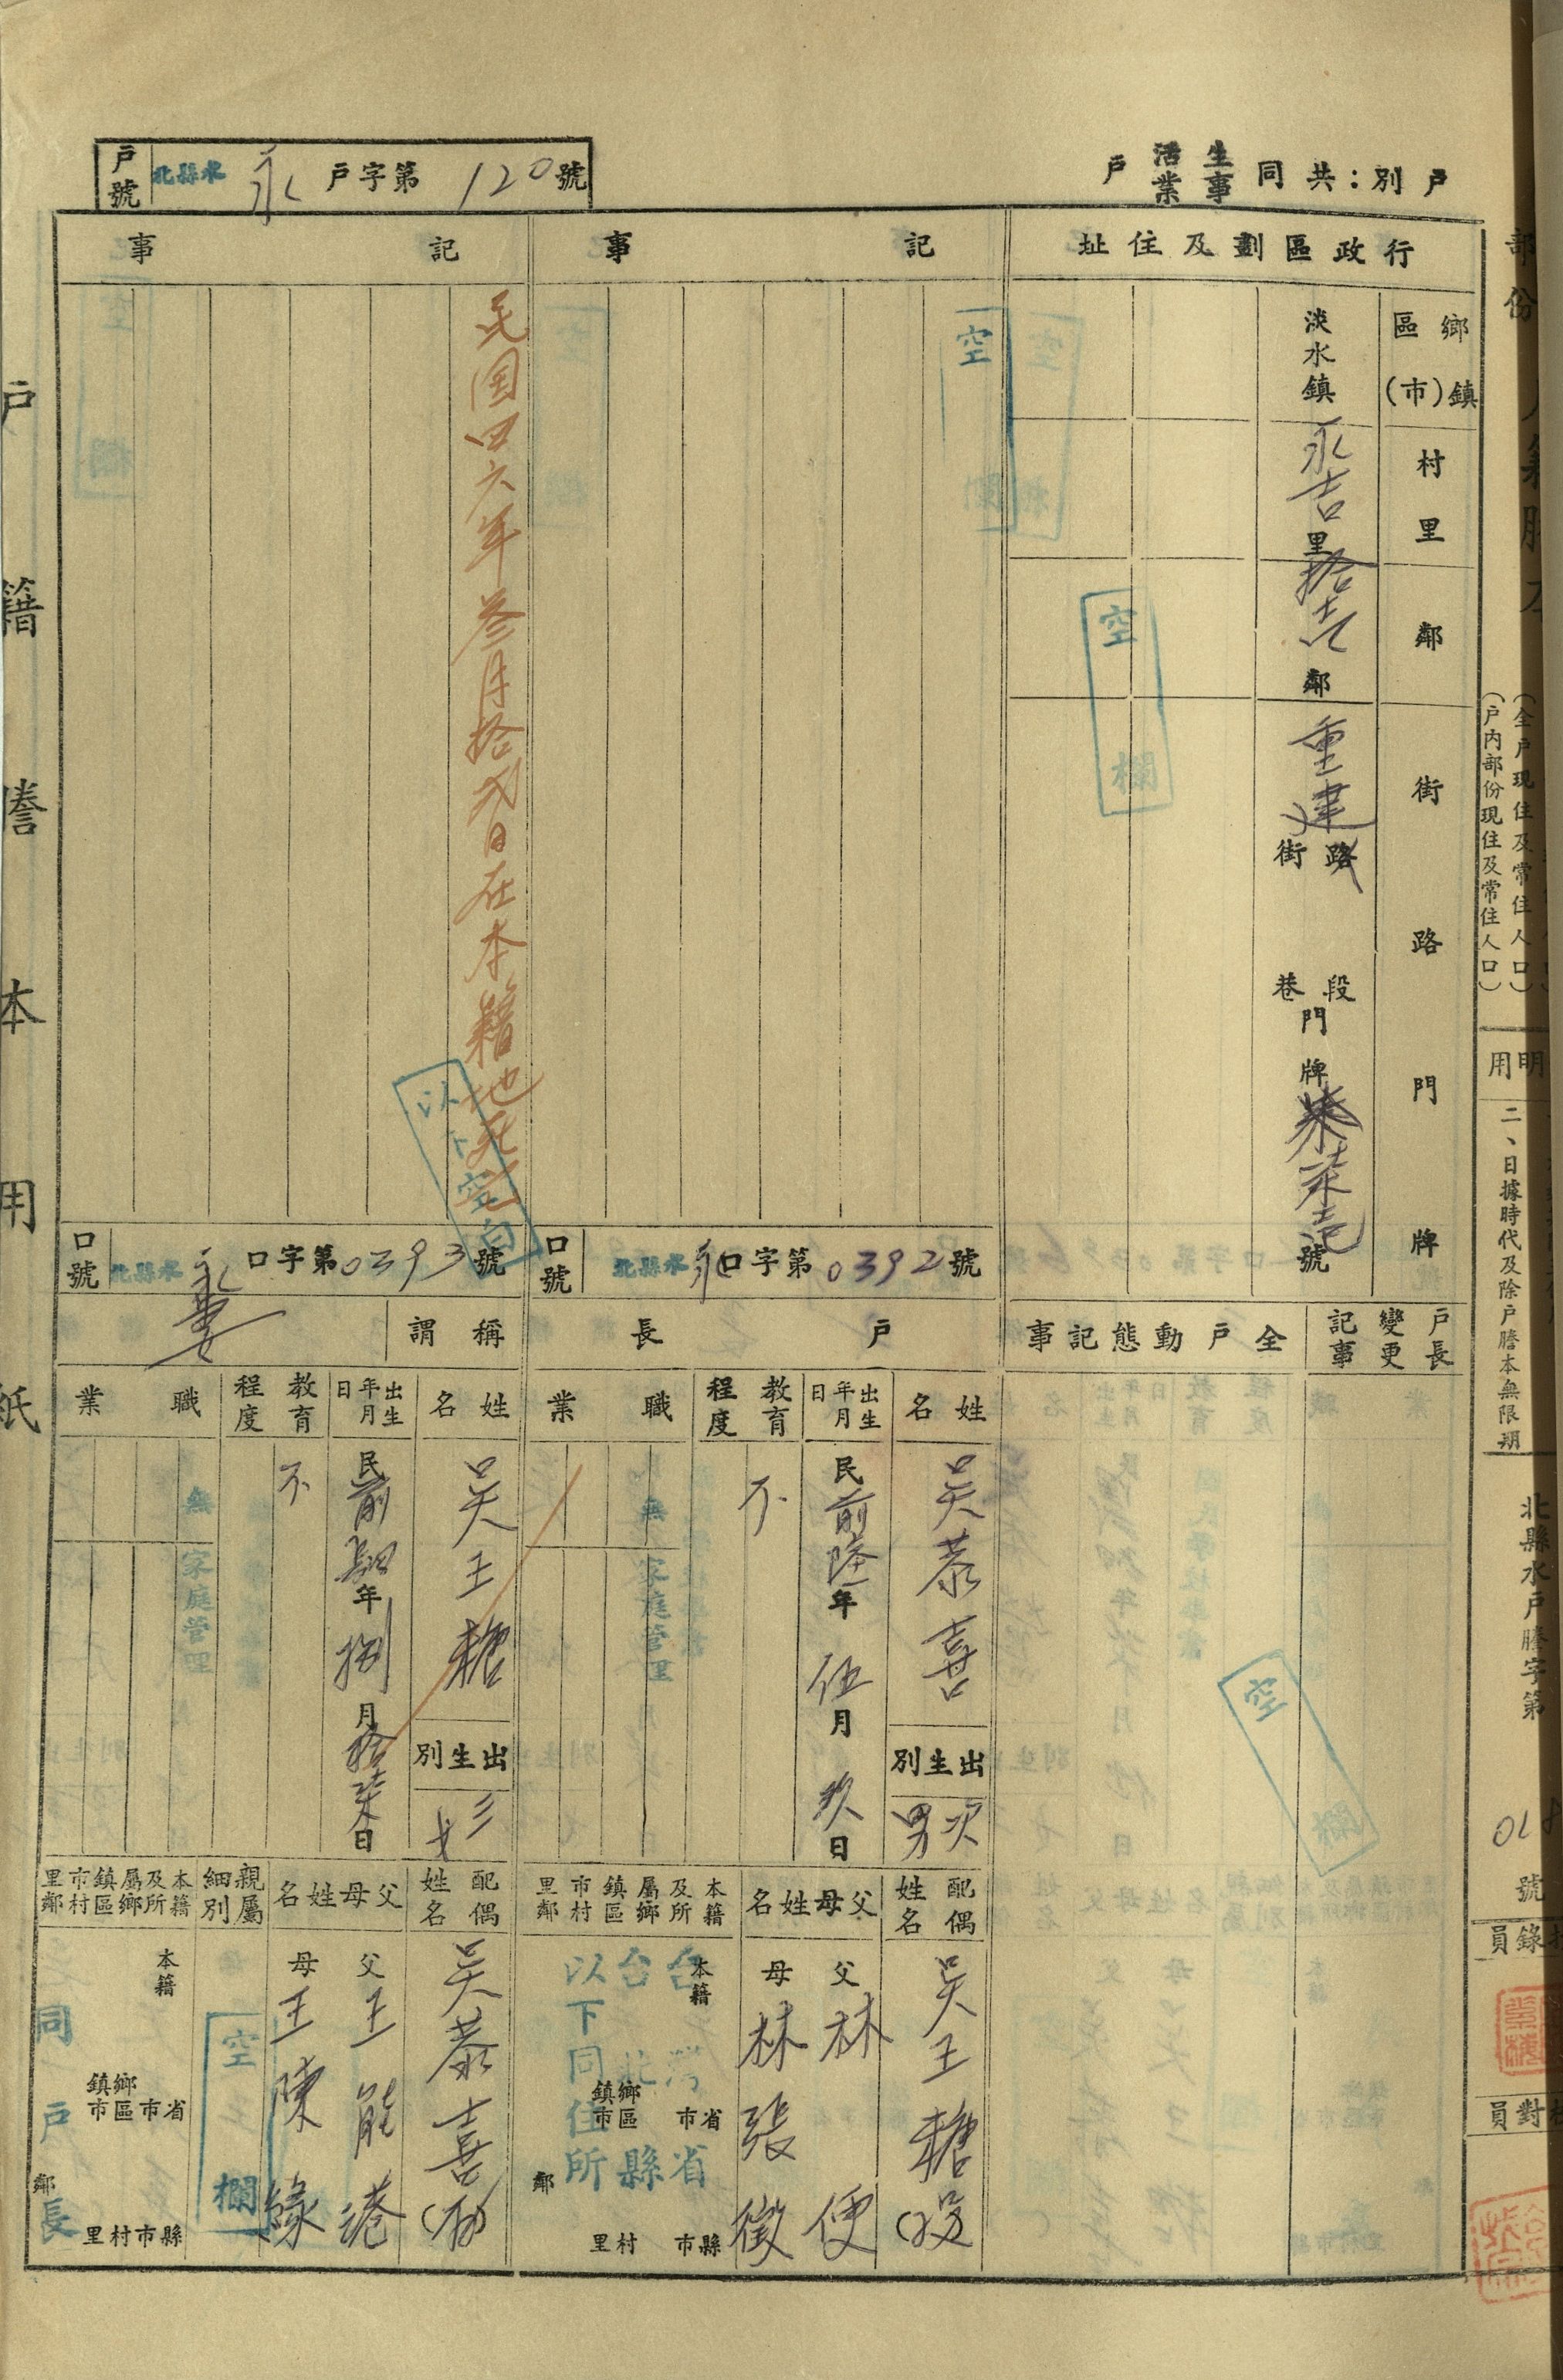 戶別：共同生活戶
事業
戶號 北縣水 永 戶字第120號
部份
(全戶現住及常住人口)
(戶內部份現住及常住人口)
明用
二、日據時代及除戶謄本無限期
北縣水戶謄字第
號
錄員
對員
行政區劃及住址
鄉鎮區(市)
村里
鄰
街路門牌
淡水鎮
永吉里
拾壱鄰
重建
街路
段巷
門牌
柒壱號
空欄
戶長變更記事
全戶動態記事
空欄
記事
空欄
口號 北縣水 永 口字第0392號
戶長
姓名
吳恭喜
出生別
次男
出生年月日
民前陸年伍月玖日
教育程度
不
職業
無
家庭管理
配偶姓名
吳王糖
父母姓名
父 林便
母 林張
本籍及所屬鄉鎮區市村里鄰
本籍
台灣省
台北縣
以下同住所
省市
縣市
鄉鎮
市區
村里
鄰
記事
民国四六年叁月拾弍日在本籍地死亡
以下空白
口號 北縣水 永 口字第0393號
稱謂
妻
姓名
吳王糖
出生別
三女
出生年月日
民前
年捌月拾柒日
教育程度
不
職業
無
家庭管理
配偶姓名
吳恭喜
父母姓名
父 王能港
母 王陳緣
親屬細別
空欄
本籍及所屬鄉鎮區市村里鄰
本籍
同戶長
省市
縣市
鄉鎮
區市
村里
鄰
戶籍謄本用紙